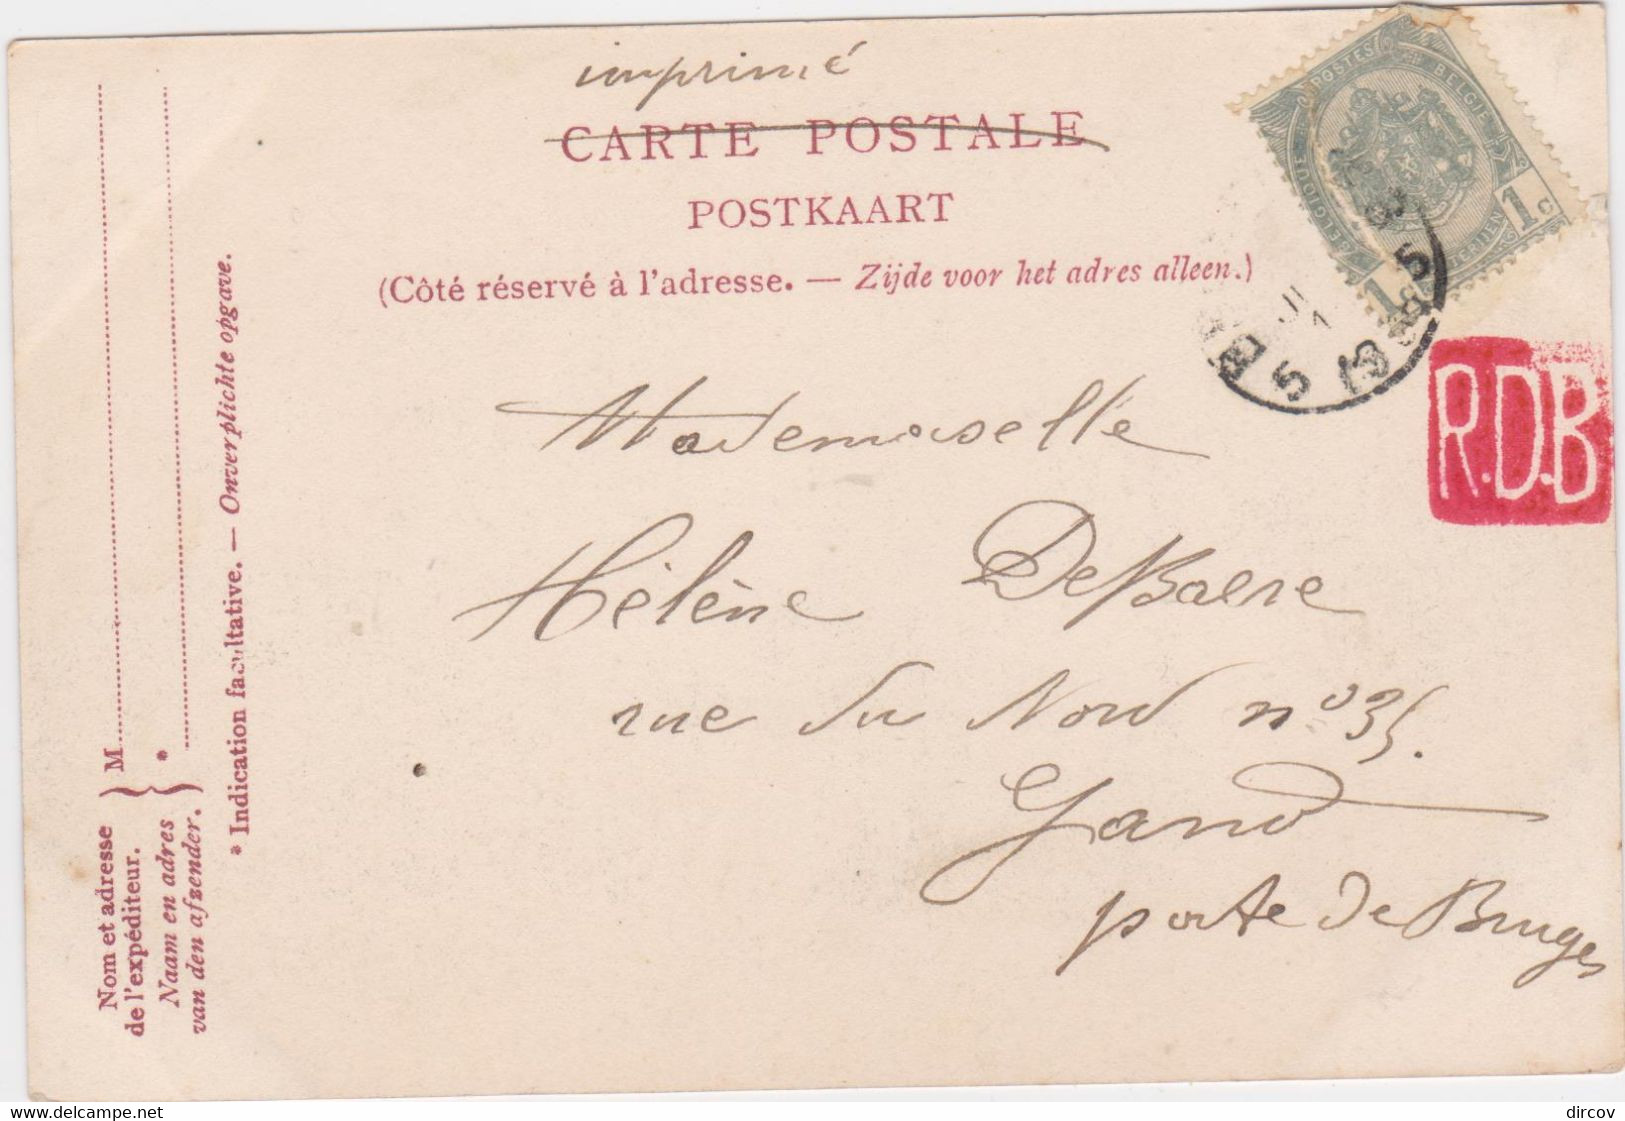 imprimé
CARTE POSTALE
POSTKAART
(Côté réservé à l'adresse. — Zijde voor het adres alleen.)
POSTES BELGIE
BELGIQUE
1 c
1
R.D.B
Mademoiselle
Hélène DeBaere
rue du Nord n° 35.
Gand
porte de Bruges
Nom et adresse
de l'expéditeur. } M
Naam en adres
van den afzender. } *
* Indication facultative. — Onverplichte opgave.
delcampe.net
dircov